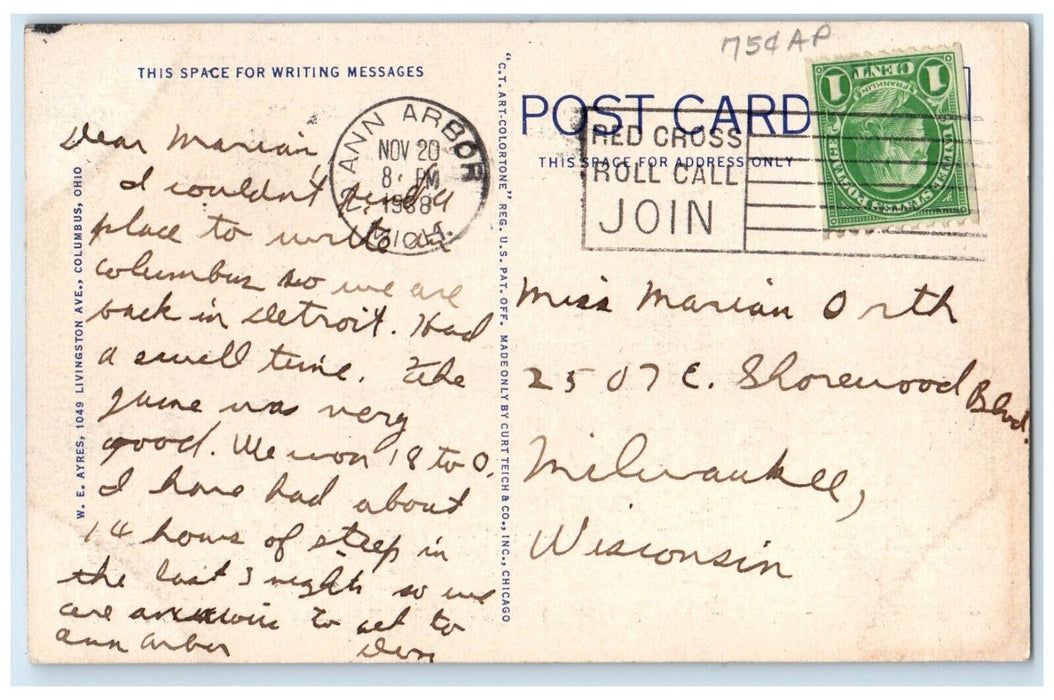 75¢ AP
THIS SPACE FOR WRITING MESSAGES
POST CARD
THIS SPACE FOR ADDRESS ONLY
ANN ARBOR
NOV 20
8 PM
1938
MICH.
RED CROSS
ROLL CALL
JOIN
1 CENT 1
FRANKLIN
UNITED STATES POSTAGE
W. E. AYRES, 1049 LIVINGSTON AVE., COLUMBUS, OHIO
"C.T. ART-COLORTONE" REG. U.S. PAT. OFF. MADE ONLY BY CURT TEICH & CO., INC., CHICAGO
Dear Marian,
I couldn't find a
place to write at
Columbus so we are
back in Detroit. Had
a swell time. The
game was very
good. We won 18 to 0.
I have had about
14 hours of sleep in
the last 3 nights so we
are anxious to get to
Ann Arbor
Miss Marian Orth
2507 E. Shorewood Blvd.
Milwaukee,
Wisconsin